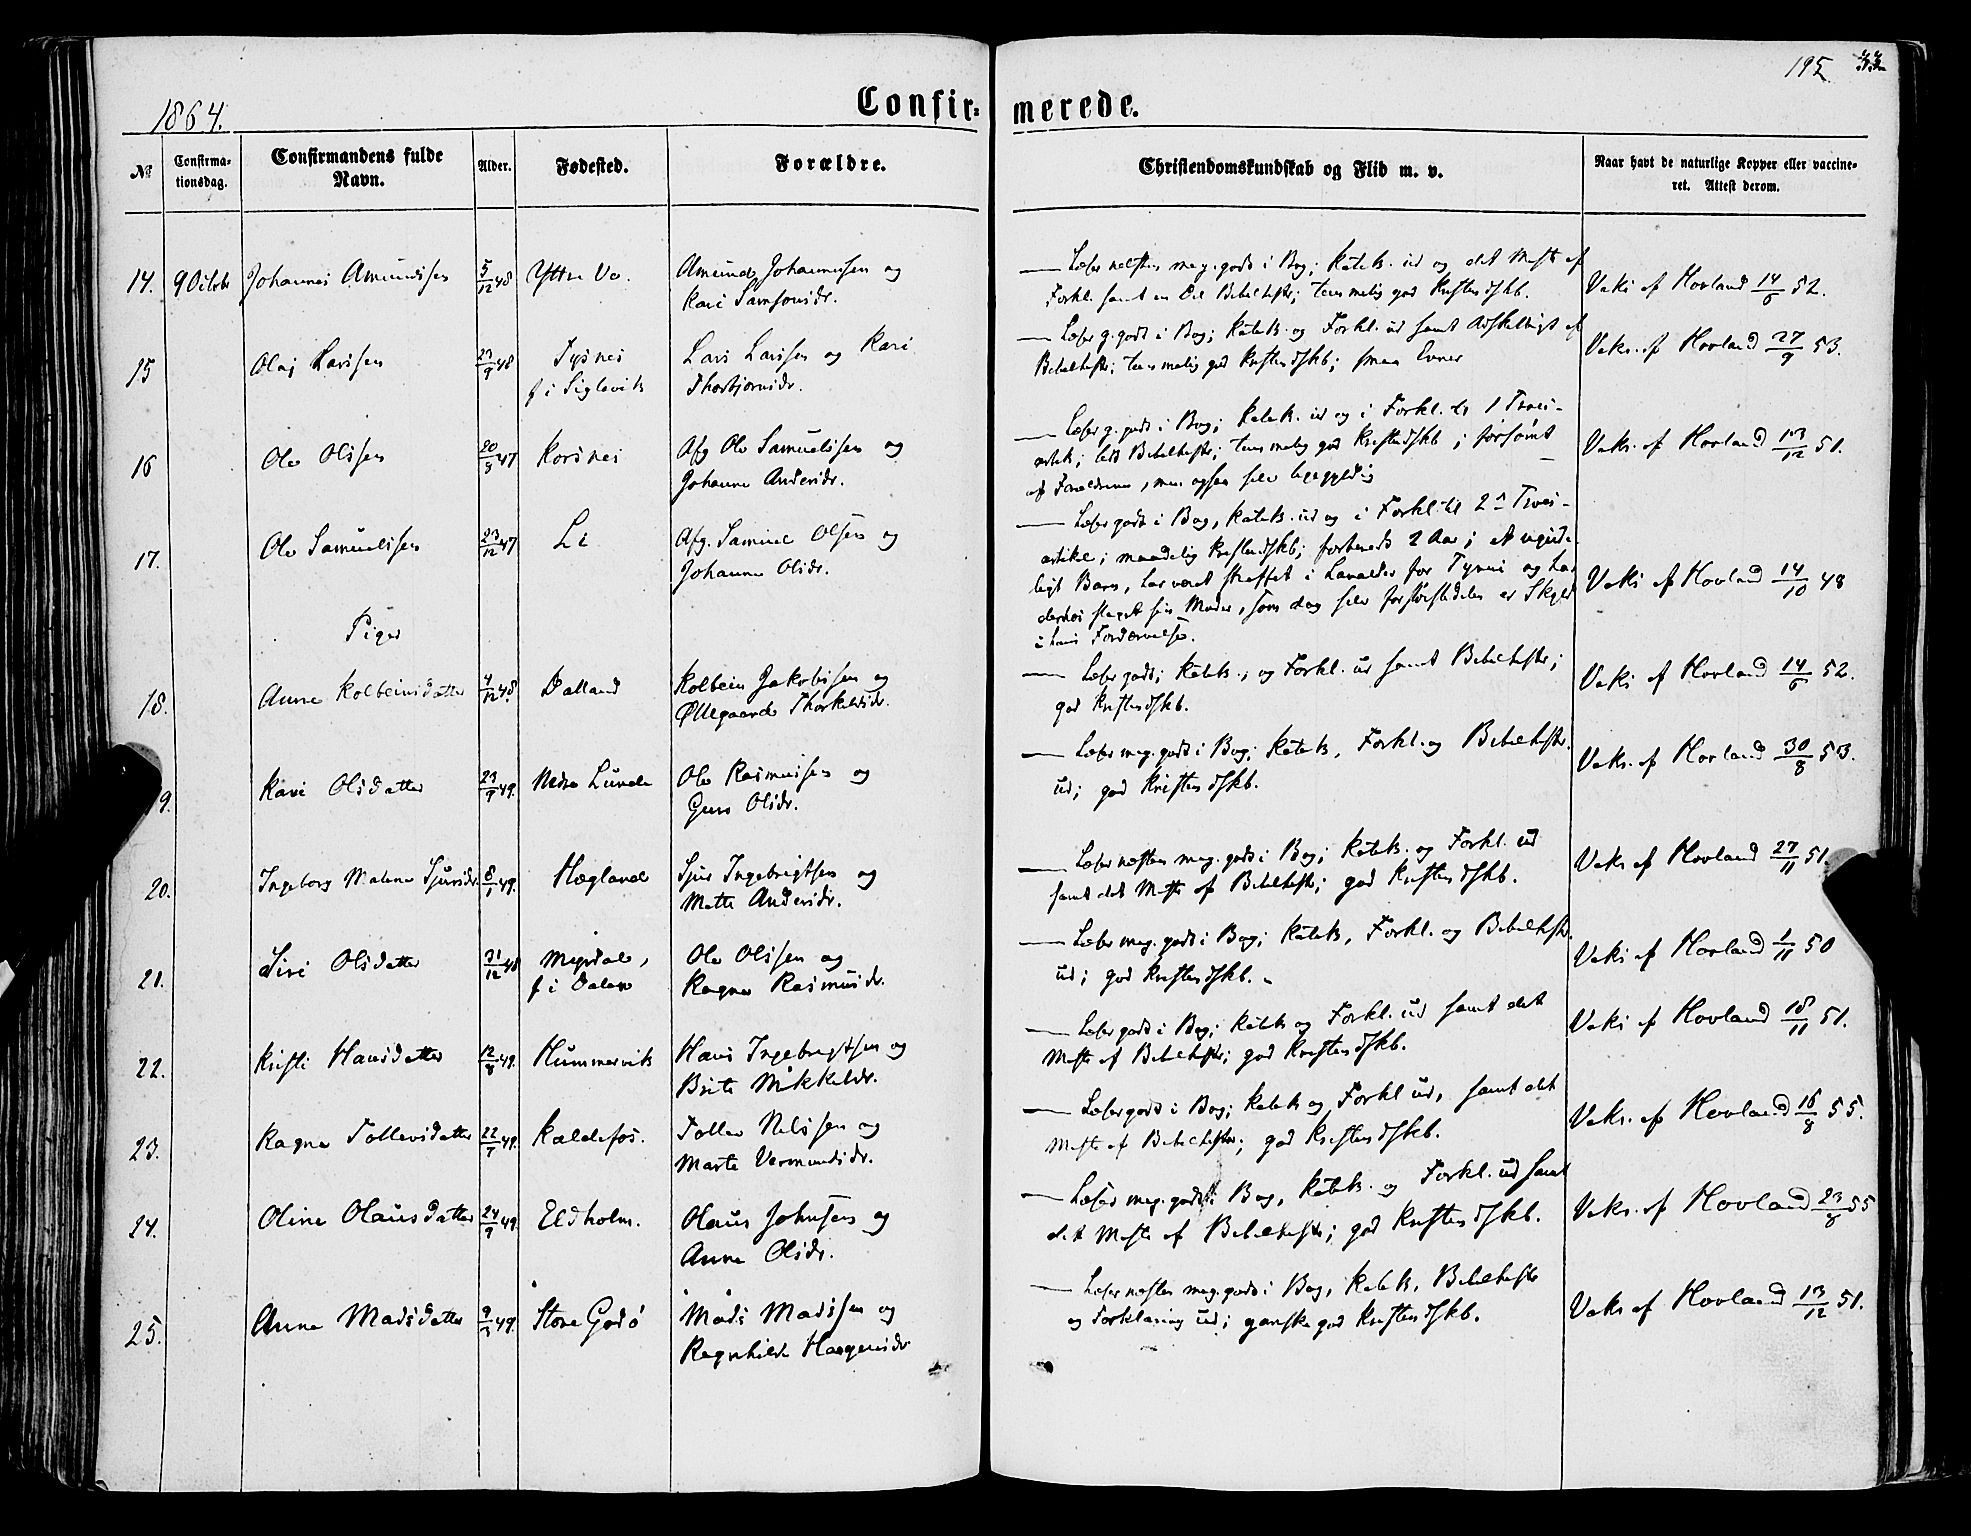 195
1864.
Confir-
merede.
№
Confirma-
tionsdag.
Confirmandens fulde
Navn.
Alder.
Fødested.
Forældre.
Christendomskundskab og Flid m. v.
Naar havt de naturlige Kopper eller vaccine-
ret. Attest derom.
14. 9 Octob Johannes Amundsen 5/12 48 Yttre Vo. Amund Johannesen og
Kari Samsonsdr.
— Læser næsten meg. godt i Bog; Katek. ud og det Meste af
Forkl. samt en Del Bibelhistr; temmelig god Kristendskb.
Vaks af Hovland 14/6 52.
15 Olaj Larssen 23/9 48 Tysnes
f i Siglevik
Lars Larssen og Kari
Thorbjørnsdr.
— Læser g. godt i Bog; Katek. og Forkl. ud samt Adskilligt af
Bibelhistr; temmelig god Kristendskb; smaa Evner
Vaks. af Hovland 27/9 53.
16 Ole Olssen 20/9 47 Korsnes Afg Ole Samuelssen og
Johanne Andersdr.
— Læser g. godt i Bog; Katek. ud og i Forkl. til 1 Troes-
artik; lidt Bibelhistr; temmelig god Kristendskb; forsømt
af Forældrene, men ogsaa selv ligegyldig
Vaks. af Hovland 13/12 51.
17. Ole Samuelssen 23/12 47 Li Afg. Samuel Olsen og
Johanne Olsdr.
— Læser godt i Bog, Katek. ud og i Forkl. til 2n Troes-
artikel; maadelig Kristendskb; forberedt 2 Aar; et ugude-
ligt Barn, har været straffet i Lavalder for Tyveri og har
derhos slaget sin Moder, som dog selv for størstedelen er Skyld
i hans Fordærvelse.
Vaks af Hovland 14/10 48
Piger
18. Anne Kolbeinsdatter 4/12 48. Dalland Kolbein Jakobssen og
Øllegaard Thorkelsdr.
— Læser godt; Katek., og Forkl. ud samt Bibelhistr;
god Kristendskb.
Vaks af Hovland 14/6 52.
9. Kari Olsdatter 23/9 49. Nedre Lunde Ole Rasmussen og
Guro Olsdr.
— Læser meg. godt i Bog; Katek, Forkl. og Bibelhistr.
ud; god Kristendskb.
Vaks. af Hovland 30/8 53.
20. Ingeborg Malene Sjursdr. 8/1 49. Hegland Sjur Ingebrigtsen og
Mette Andersdr.
— Læser næsten meg. godt i Bog; Katek. og Forkl. ud
samt det Meste af Bibelhistr; god Kristendskb.
Vaks af Hovland 27/11 51.
21. Siri Olsdatter 31/12 48 Myrdal,
f i Dalen
Ole Olssen og
Ragna Rasmusdr.
— Læser meg. godt i Bog; Katek, Forkl. og Bibelhistr.
ud; god Kristendskb.
Vaks af Hovland 1/11 50
22. Kristi Hansdatter 12/8 49. Hummervik Hans Ingebrigtsen og
Brite Mikkelsdr.
— Læser godt i Bog; Katek og Forkl. ud samt det
Meste af Bibelhistr; god Kristendskb.
Vaks af Hovland 18/11 51.
23. Ragna Tollevsdatter 22/7 49. Kaldefos. Tollev Nelssen og
Marta Vermundsdr.
— Læser godt i Bog; Katek og Forkl ud, samt det
Meste af Bibelhistr; god Kristendskb.
Vaks. af Hovland 16/8 55.
24. Oline Olausdatter 24/9 49 Eldholm. Olaus Johnsen og
Anne Olsdr.
— Læser meg. godt i Bog, Katek. og Forkl. ud samt
det Meste af Bibelhistr; god Kristendskb.
Vaks. af Hovland 23/8 55
25. Anne Madsdatter 9/3 49. Store Godø Mads Madssen og
Ragnhilde Haagensdr
— Læser næsten meg. godt i Bog, Katek, Bibelhistr
og Forklaring ud; ganske god Kristendskb.
Vaks af Hovland 13/12 51.